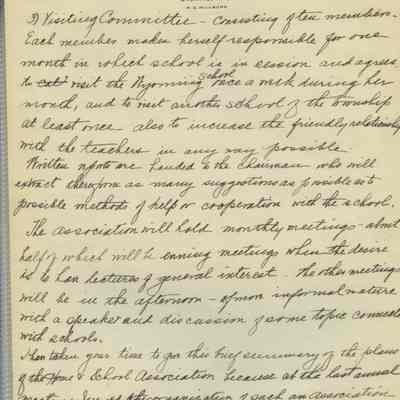 3) Visiting Committee - Consisting of ten members.
Each member makes herself responsible for one
month in which school is in session and agrees
to visit the Wyoming School once a week during her
month, and to visit another school of the township
at least once also to increase the friendly relationship
with the teachers in any way possible.
Written reports are handed to the Chairman who will
extract therefrom as many suggestions as possible as to
possible methods of help or cooperation with the school.
The Association will hold monthly meetings - about
half of which will be evening meetings when the desire
is to have lectures of general interest - the other meetings
will be in the afternoon - of more informal nature
with a speaker and discussion of some topic connected
with schools.
I have taken your time to give this brief summary of the plans
of the Home & School Association because at the last annual
organization of such an Association